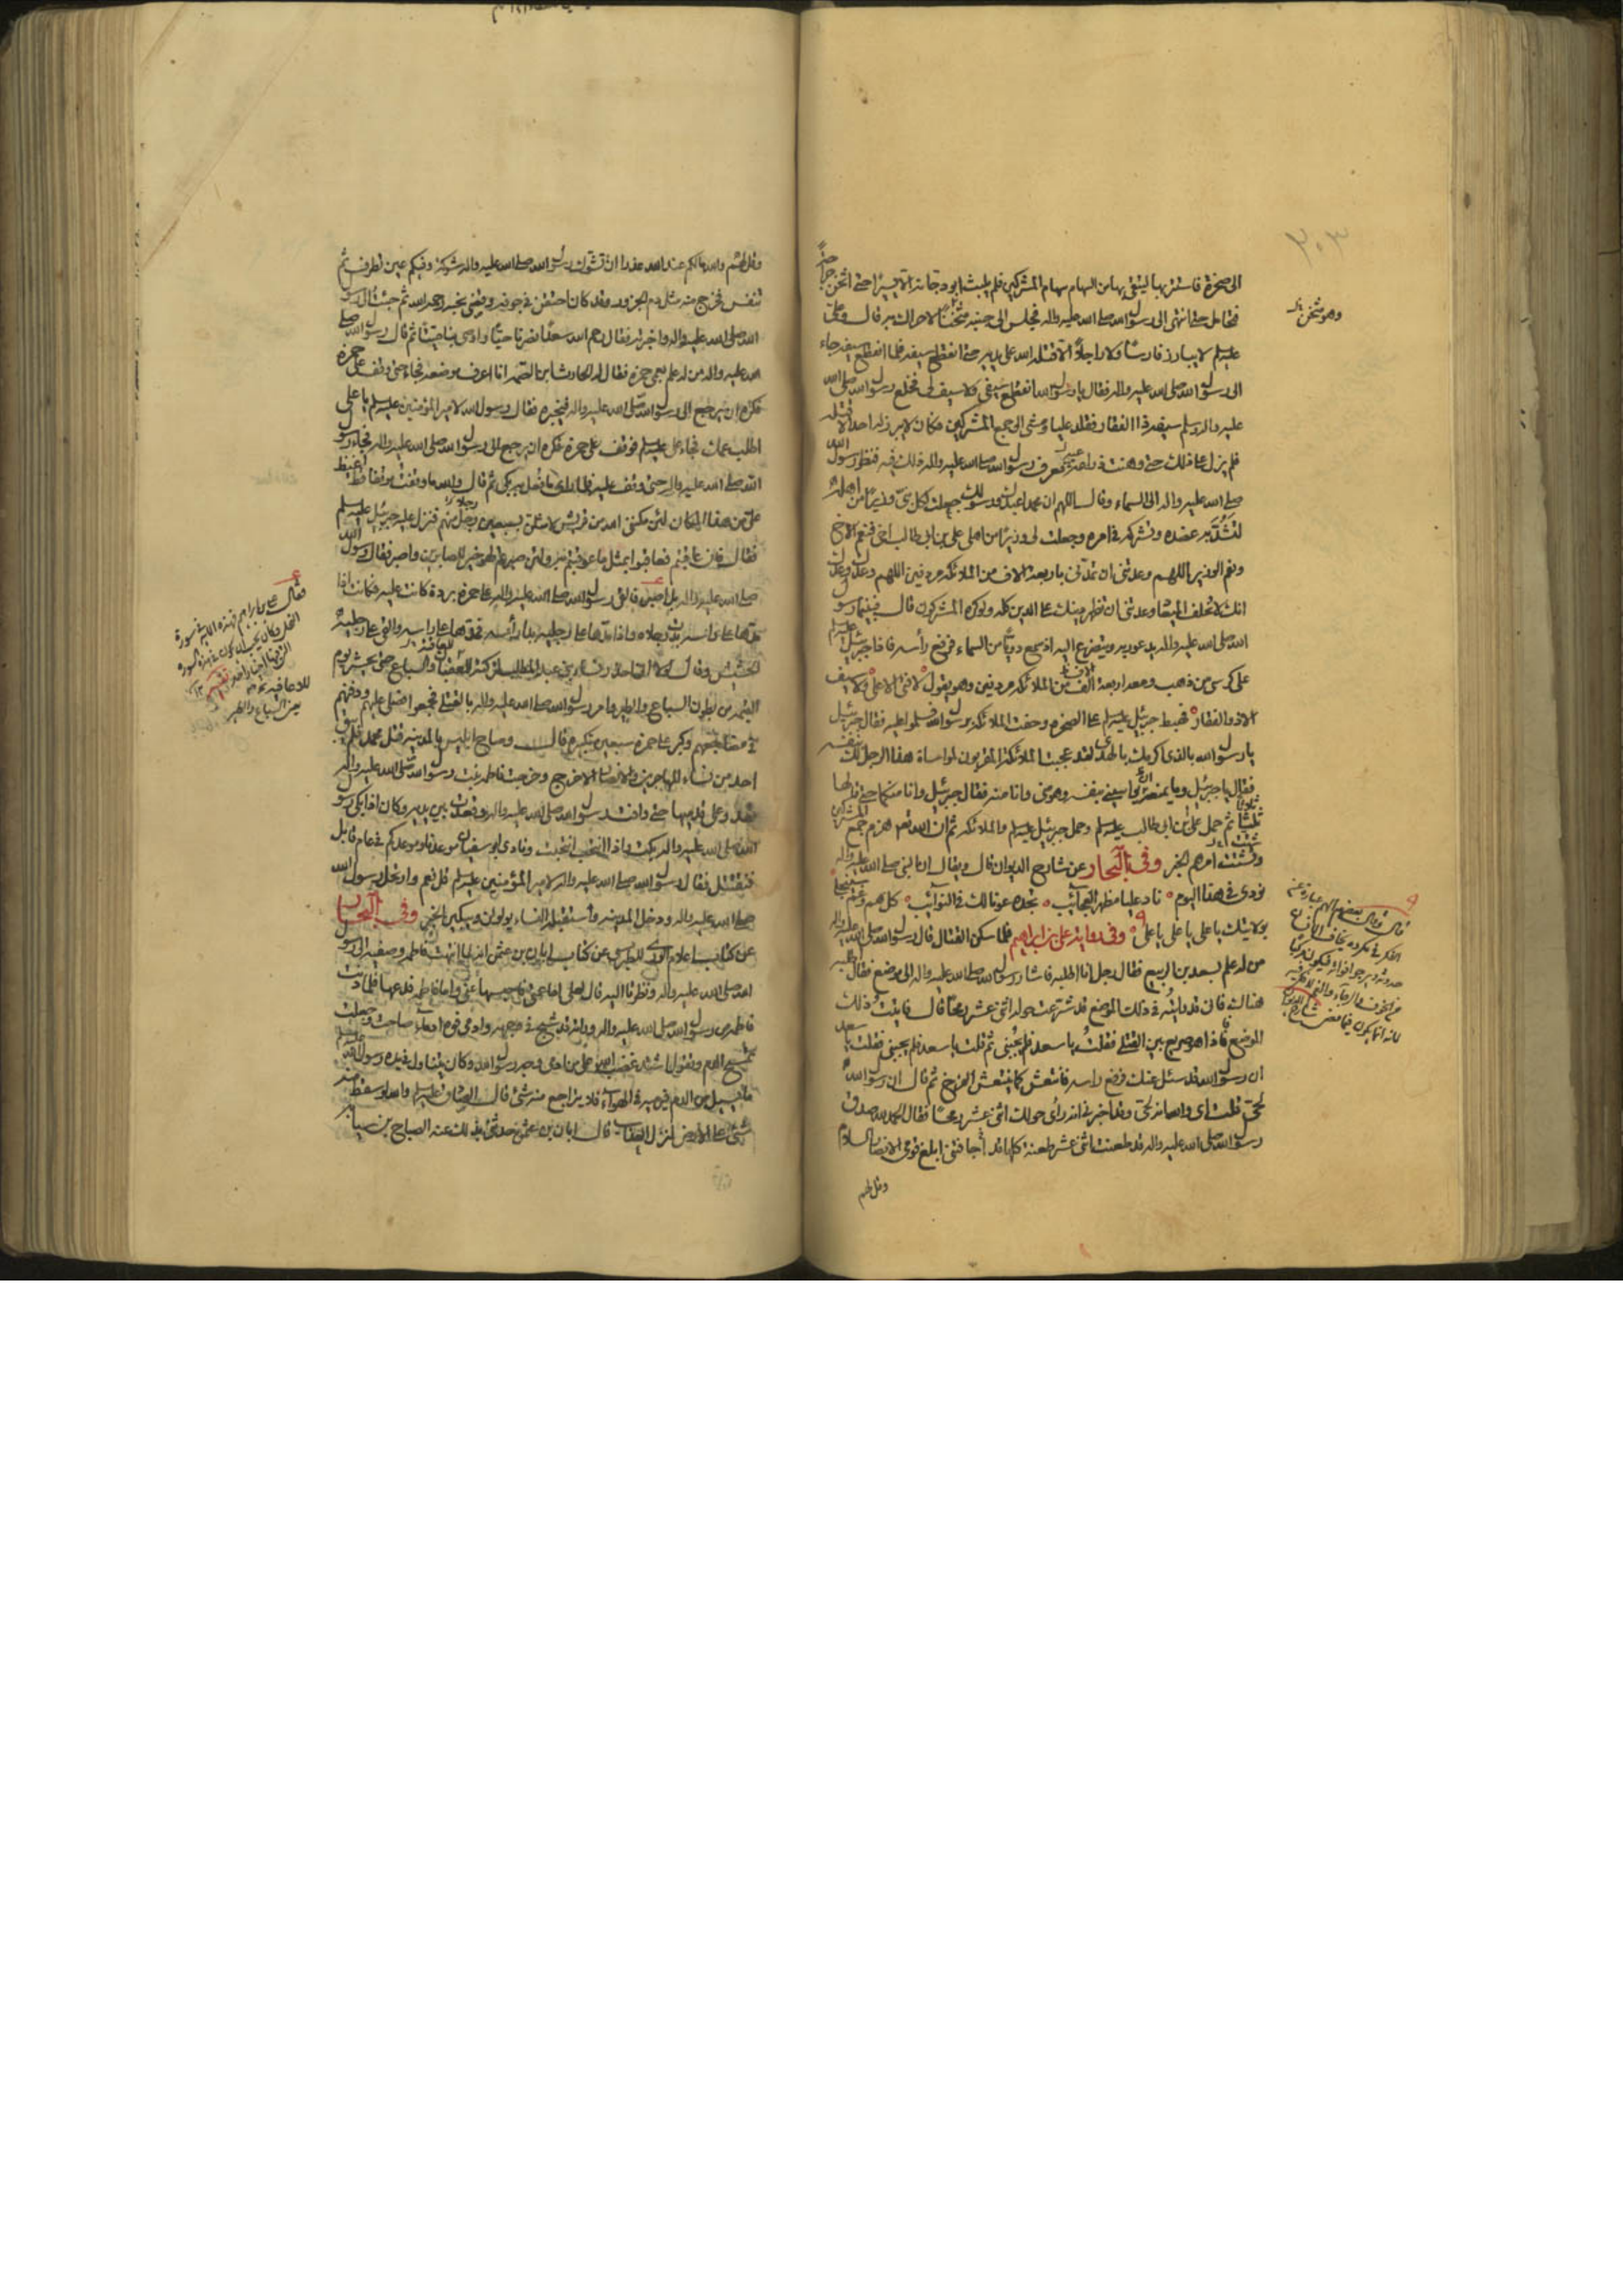 ٣٠٣
الى صخرة فاستتر بها ليتقى بها من السهام سهام المشركين فلم يلبث ابودجانة الا يسيرًا حتى اثخن جراحة
فتحامل حتى انتهى الى رسول الله صلى الله عليه واله فجلس الى جنبه مثخنًا لا حراك به قال وعلى
عليه السلم لا يبارز فارسًا ولا راجلًا الا قتله الله على يديه حتى انقطع سيفه فلما انقطع سيفه جاء
الى رسول الله صلى الله عليه واله فقال يا رسول الله انقطع سيفى ولا سيف لى فخلع رسول الله صلى الله
عليه واله وسلم سيفه ذا الفقار فقلده عليا ومشى الى جمع المشركين فكان لا يبرز له احد الا قتله
فلم يزل على ذلك حتى وهنت ذراعه فعرف رسول الله صلى الله عليه واله ذلك فيه فنظر رسول الله
صلى الله عليه واله الى السماء وقال اللهم ان محمدا عبدك ورسولك جعلت لكل نبى وزيرًا من اهله
لتشد به عضده وتشركه فى امره وجعلت لى وزيرًا من اهلى على بن ابى طالب اخى فنعم الاخ
ونعم الوزير اللهم وعدتنى ان تمدنى باربعة الاف من الملائكة مردفين اللهم وعدك وعدك
انك لا تخلف الميعاد وعدتنى ان تظهر دينك على الدين كله ولو كره المشركون قال فبينما رسو
الله صلى الله عليه واله يدعو ربه ويتضرع اليه اذ سمع دويًا من السماء فرفع رأسه فاذا جبرئيل عليه السلم
على كرسى من ذهب ومعه اربعة الاف من الملائكة مردفين وهو يقول لا فتى الا على ولا سيف
الا ذو الفقار فهبط جبرئيل عليه السلم على الصخرة وحفت الملائكة برسول الله فسلموا عليه فقال جبرئيل
يا رسول الله بالذى اكرمك بالهدى لقد عجبت الملائكة المقربون لمواساة هذا الرجل لك بنفسه
فقال يا جبرئيل وما يمنعه ان يواسينى بنفسه وهو منى وانا منه فقال جبرئيل وانا منكما حتى قالها
ثلثًا ثم حمل على بن ابى طالب عليه السلم وحمل جبرئيل عليه السلم والملائكة ثم ان الله تعم هزم جمع المشركين
وتشتت امرهم الخبر وفى البحار عن شارح الديوان قال ويقال ان النبى صلى الله عليه واله
نودى فى هذا اليوم ناد عليا مظهر العجائب تجده عونا لك فى النوائب كل هم وغم سينجلى
بولايتك يا على يا على يا على وفى رواية على بن ابراهيم فلما سكن القتال قال رسول الله صلى الله عليه واله
من له علم بسعد بن الربيع فقال رجل انا اطلبه فاشار رسول الله صلى الله عليه واله الى موضع فقال اطلبه
هناك فانى قد رايته فى ذلك الموضع قد شرعت حوله اثنى عشر رمحًا قال فاتيت ذلك
الموضع فاذا هو صريع بين القتلى فقلت يا سعد فلم يجبنى ثم قلت يا سعد فلم يجبنى فقلت يا سعد
ان رسول الله قد سئل عنك فرفع راسه فانتعش كما ينتعش الفرخ ثم قال ان رسول الله
لحى قلت اى والله انه لحى وقد اخبرنى انه رأى حولك اثنى عشر رمحًا فقال الحمد لله صدق
رسول الله صلى الله عليه واله قد طعنت اثنى عشر طعنة كلها قد اجافتنى ابلغ قومى الانصار السلام
وقل لهم
وهو مثخن
وقل لهم والله مالكم عند الله عذر ان تشوك رسول الله صلى الله عليه واله شوكة وفيكم عين تطرف ثم
تنفس فخرج منه مثل دم الجزور وقد كان احتقن فى جوفه وقضى نحبه رحمه الله ثم جئت الى رسو
الله صلى الله عليه واله واخبرته فقال رحم الله سعدًا نصرنا حيًا واوصى بنا ميتًا ثم قال رسول الله صلى
الله عليه واله من له علم بعمى حمزة فقال له الحارث بن الصمه انا اعرف موضعه فجاء حتى وقف على حمزة
فكره ان يرجع الى رسول الله صلى الله عليه واله فيخبره فقال رسول الله لامير المؤمنين عليه السلم يا على
اطلب عمك فجاء على عليه السلم فوقف على حمزة فكره ان يرجع الى رسول الله صلى الله عليه واله فجاء رسو
الله صلى الله عليه واله حتى وقف عليه فلما راى ما فعل به بكى ثم قال والله ما وقفت موقفا قط اغيظ
على من هذا المكان لئن مكننى الله من قريش لامثلن بسبعين رجلا منهم فنزل عليه جبرئيل عليه السلم
فقال وان عاقبتم فعاقبوا بمثل ما عوقبتم به ولئن صبرتم لهو خير للصابرين واصبر فقال رسول الله
صلى الله عليه واله بل اصبر فالقى رسول الله صلى الله عليه واله على حمزة بردة كانت عليه فكانت اذا
مدها على راسه بدت رجلاه واذا مدها على رجليه بدا رأسه فمدها على راسه والقى على رجليه
الحشيش وقال لولا انى احذر نساء بنى عبد المطلب لتركته للعقبان والسباع حتى يحشر يوم
القيمة من بطون السباع والطير وامر رسول الله صلى الله عليه واله بالقتلى فجمعوا فصلى عليهم ودفنهم
فى مضاجعهم وكبر على حمزة سبعين تكبيرة قال وصاح ابليس بالمدينة قتل محمد فلم يبق
احد من نساء المهاجرين والانصار الا خرج وخرجت فاطمه بنت رسول الله صلى الله عليه واله
تعدو على قدميها حتى وافت رسول الله صلى الله عليه واله وقعدت بين يديه وكان اذا بكى رسو
الله صلى الله عليه واله بكت واذا انتحب انتحبت ونادى ابو سفيان موعدنا وموعدكم فى عام قابل
فنقتتل فقال رسول الله صلى الله عليه واله لامير المؤمنين عليه السلم قل نعم وارتحل رسول الله
صلى الله عليه واله ودخل المدينة واستقبلته النساء يولولن ويبكين الخبر وفى البحار
عن كتاب اعلام الورى للطبرسى عن كتاب ابان بن عثمن انه لما انتهت فاطمه وصفية الى رسول
الله صلى الله عليه واله ونظرتا اليه قال لعلى اما عمتى فاحبسها عنى واما فاطمه فدعها فلما دنت
فاطمه من رسول الله صلى الله عليه واله وراته قد شج فى وجهه وادمى فوه ادماء صاحت وجعلت
تمسح الدم وتقول اشتد غضب الله على من ادمى وجه رسول الله وكان يتناول فى يده رسول الله
ما يسيل من الدم فيرميه فى الهواء فلا يتراجع منه شئ قال الصادق عليه السلم والله لو سقط منه
شئ على الارض لنزل العذاب قال ابان بن عثمن حدثنى بذلك عنه الصباح بن سيابه